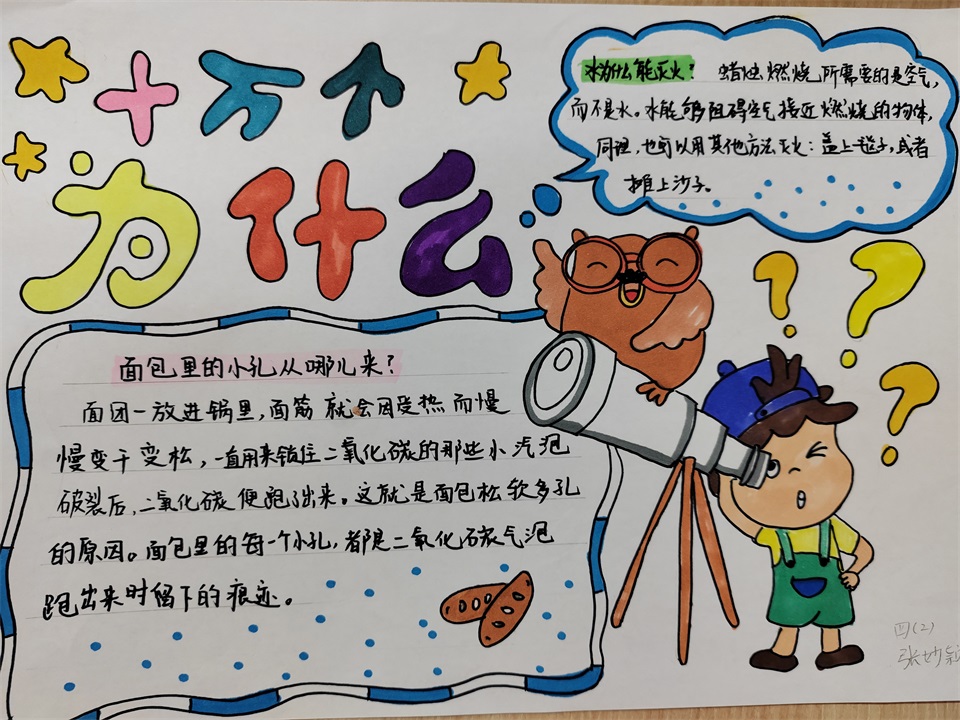 十万个
为什么
水为什么能灭火? 蜡烛燃烧所需要的是空气,
而不是水。水能够阻碍空气接近燃烧的物体,
同理,也可以用其他方法灭火:盖上毯子,或者
摊上沙子。
面包里的小孔从哪儿来?
面团一放进锅里,面筋就会因受热而慢
慢变干变松,一直用来锁住二氧化碳的那些小汽泡
破裂后,二氧化碳便跑出来。这就是面包松软多孔
的原因。面包里的每一个小孔,都是二氧化碳气泡
跑出来时留下的痕迹。
四(2)
张妙颖